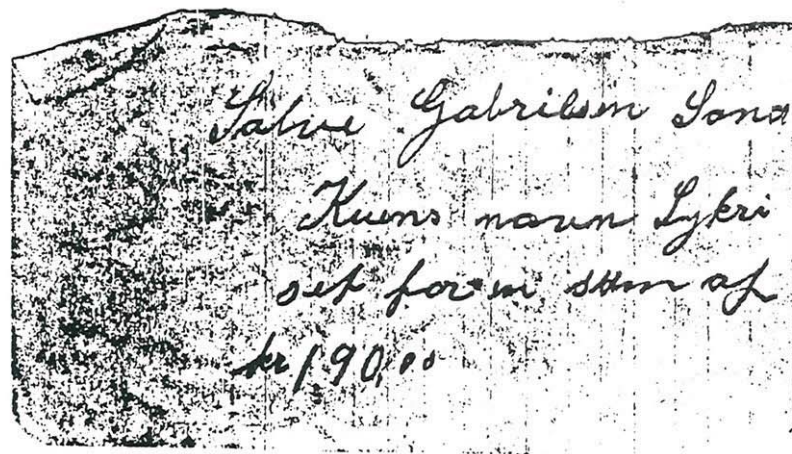 Salve Gabrilsen Sona
Kuens navn Lykri
set for en sum af
kr 190,00